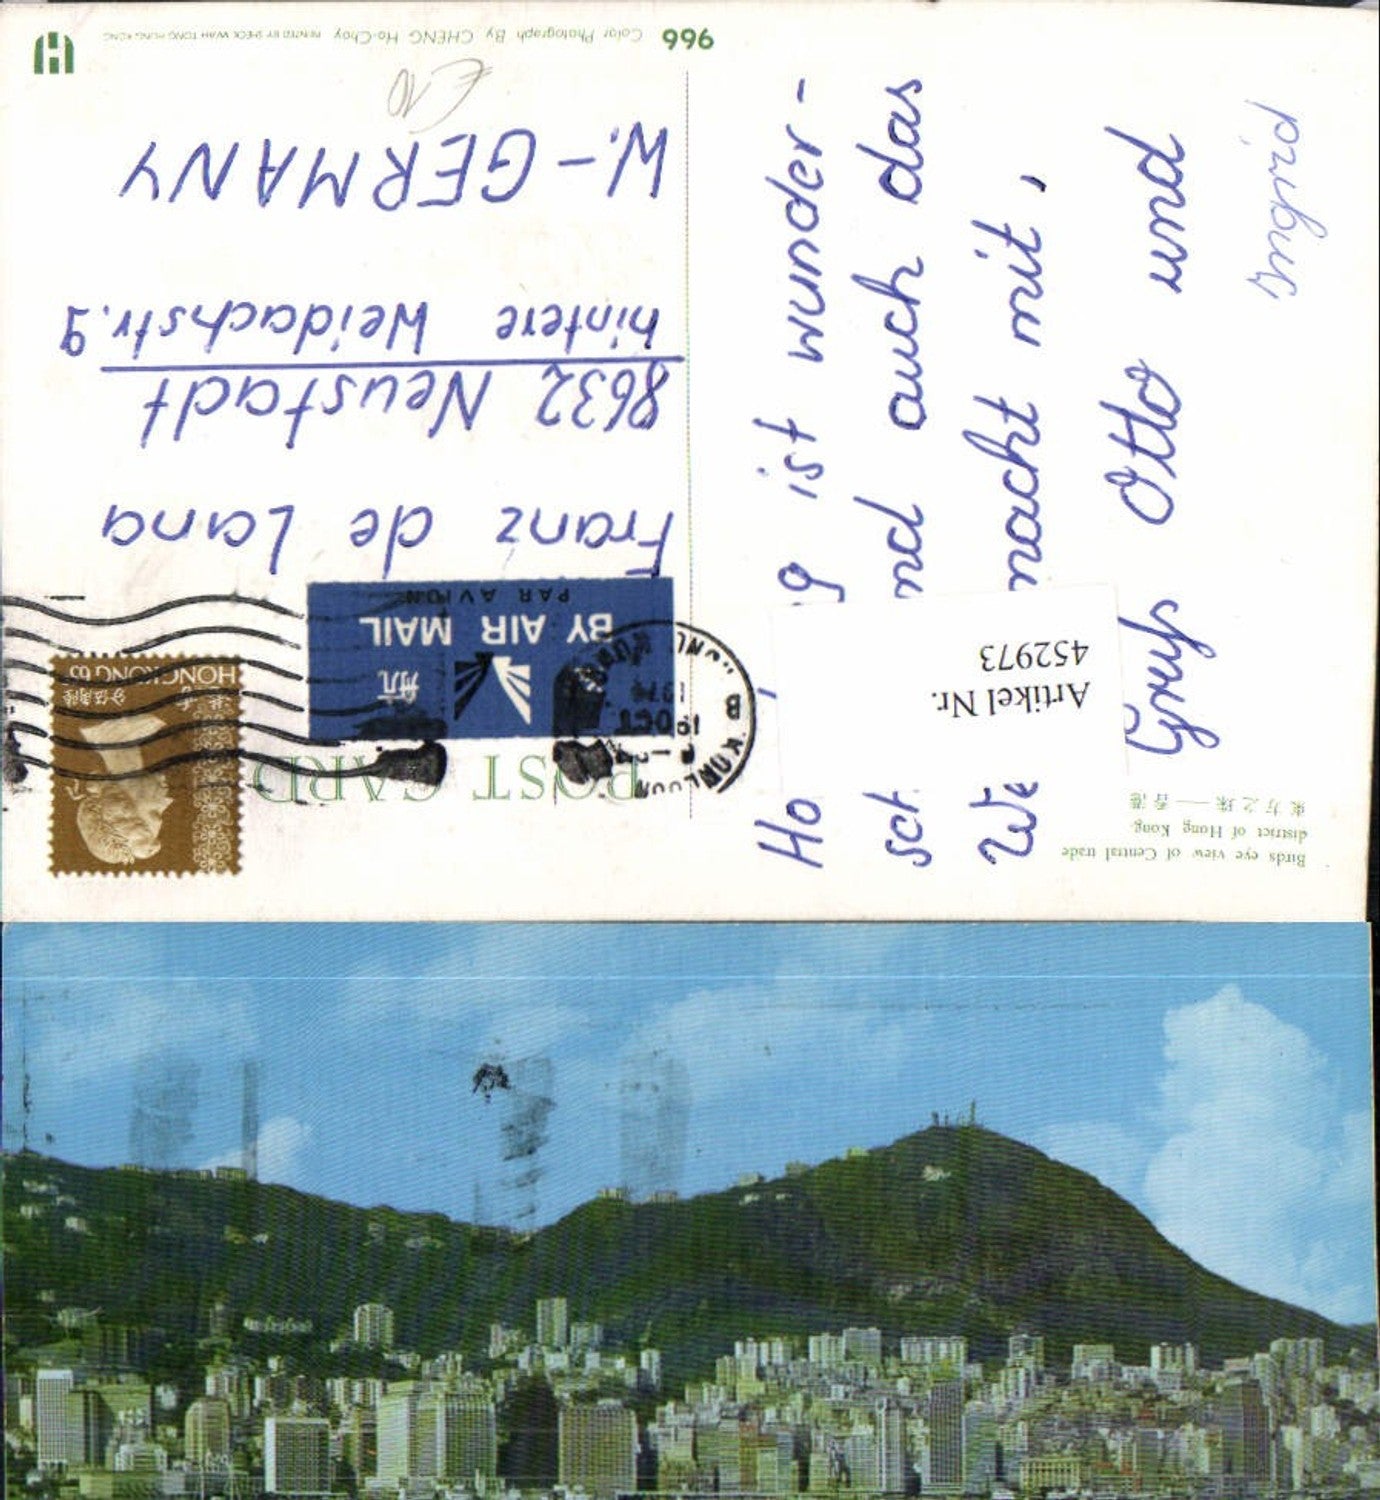 Birds eye view of Central trade
district of Hong Kong.
東方之珠——香港
POST CARD
HONG KONG 65
BY AIR MAIL
PAR AVION
航
KOWLOON
B
19 OCT
HONG KONG
Ho g ist wunder-
sch nd auch das
We macht mit,
Gruß Otto und
Ingrid
Artikel Nr.
452973
Franz de Lana
8632 Neustadt
hintere Weidachstr. 9
W.-GERMANY
€10
966
Color Photograph By CHENG Ho-Choy
PRINTED BY SHECK WAH TONG HONG KONG